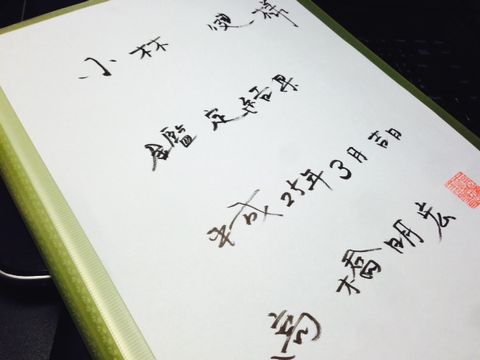 小林 史祥
鑑定結果
平成25年3月吉日
高橋明宏